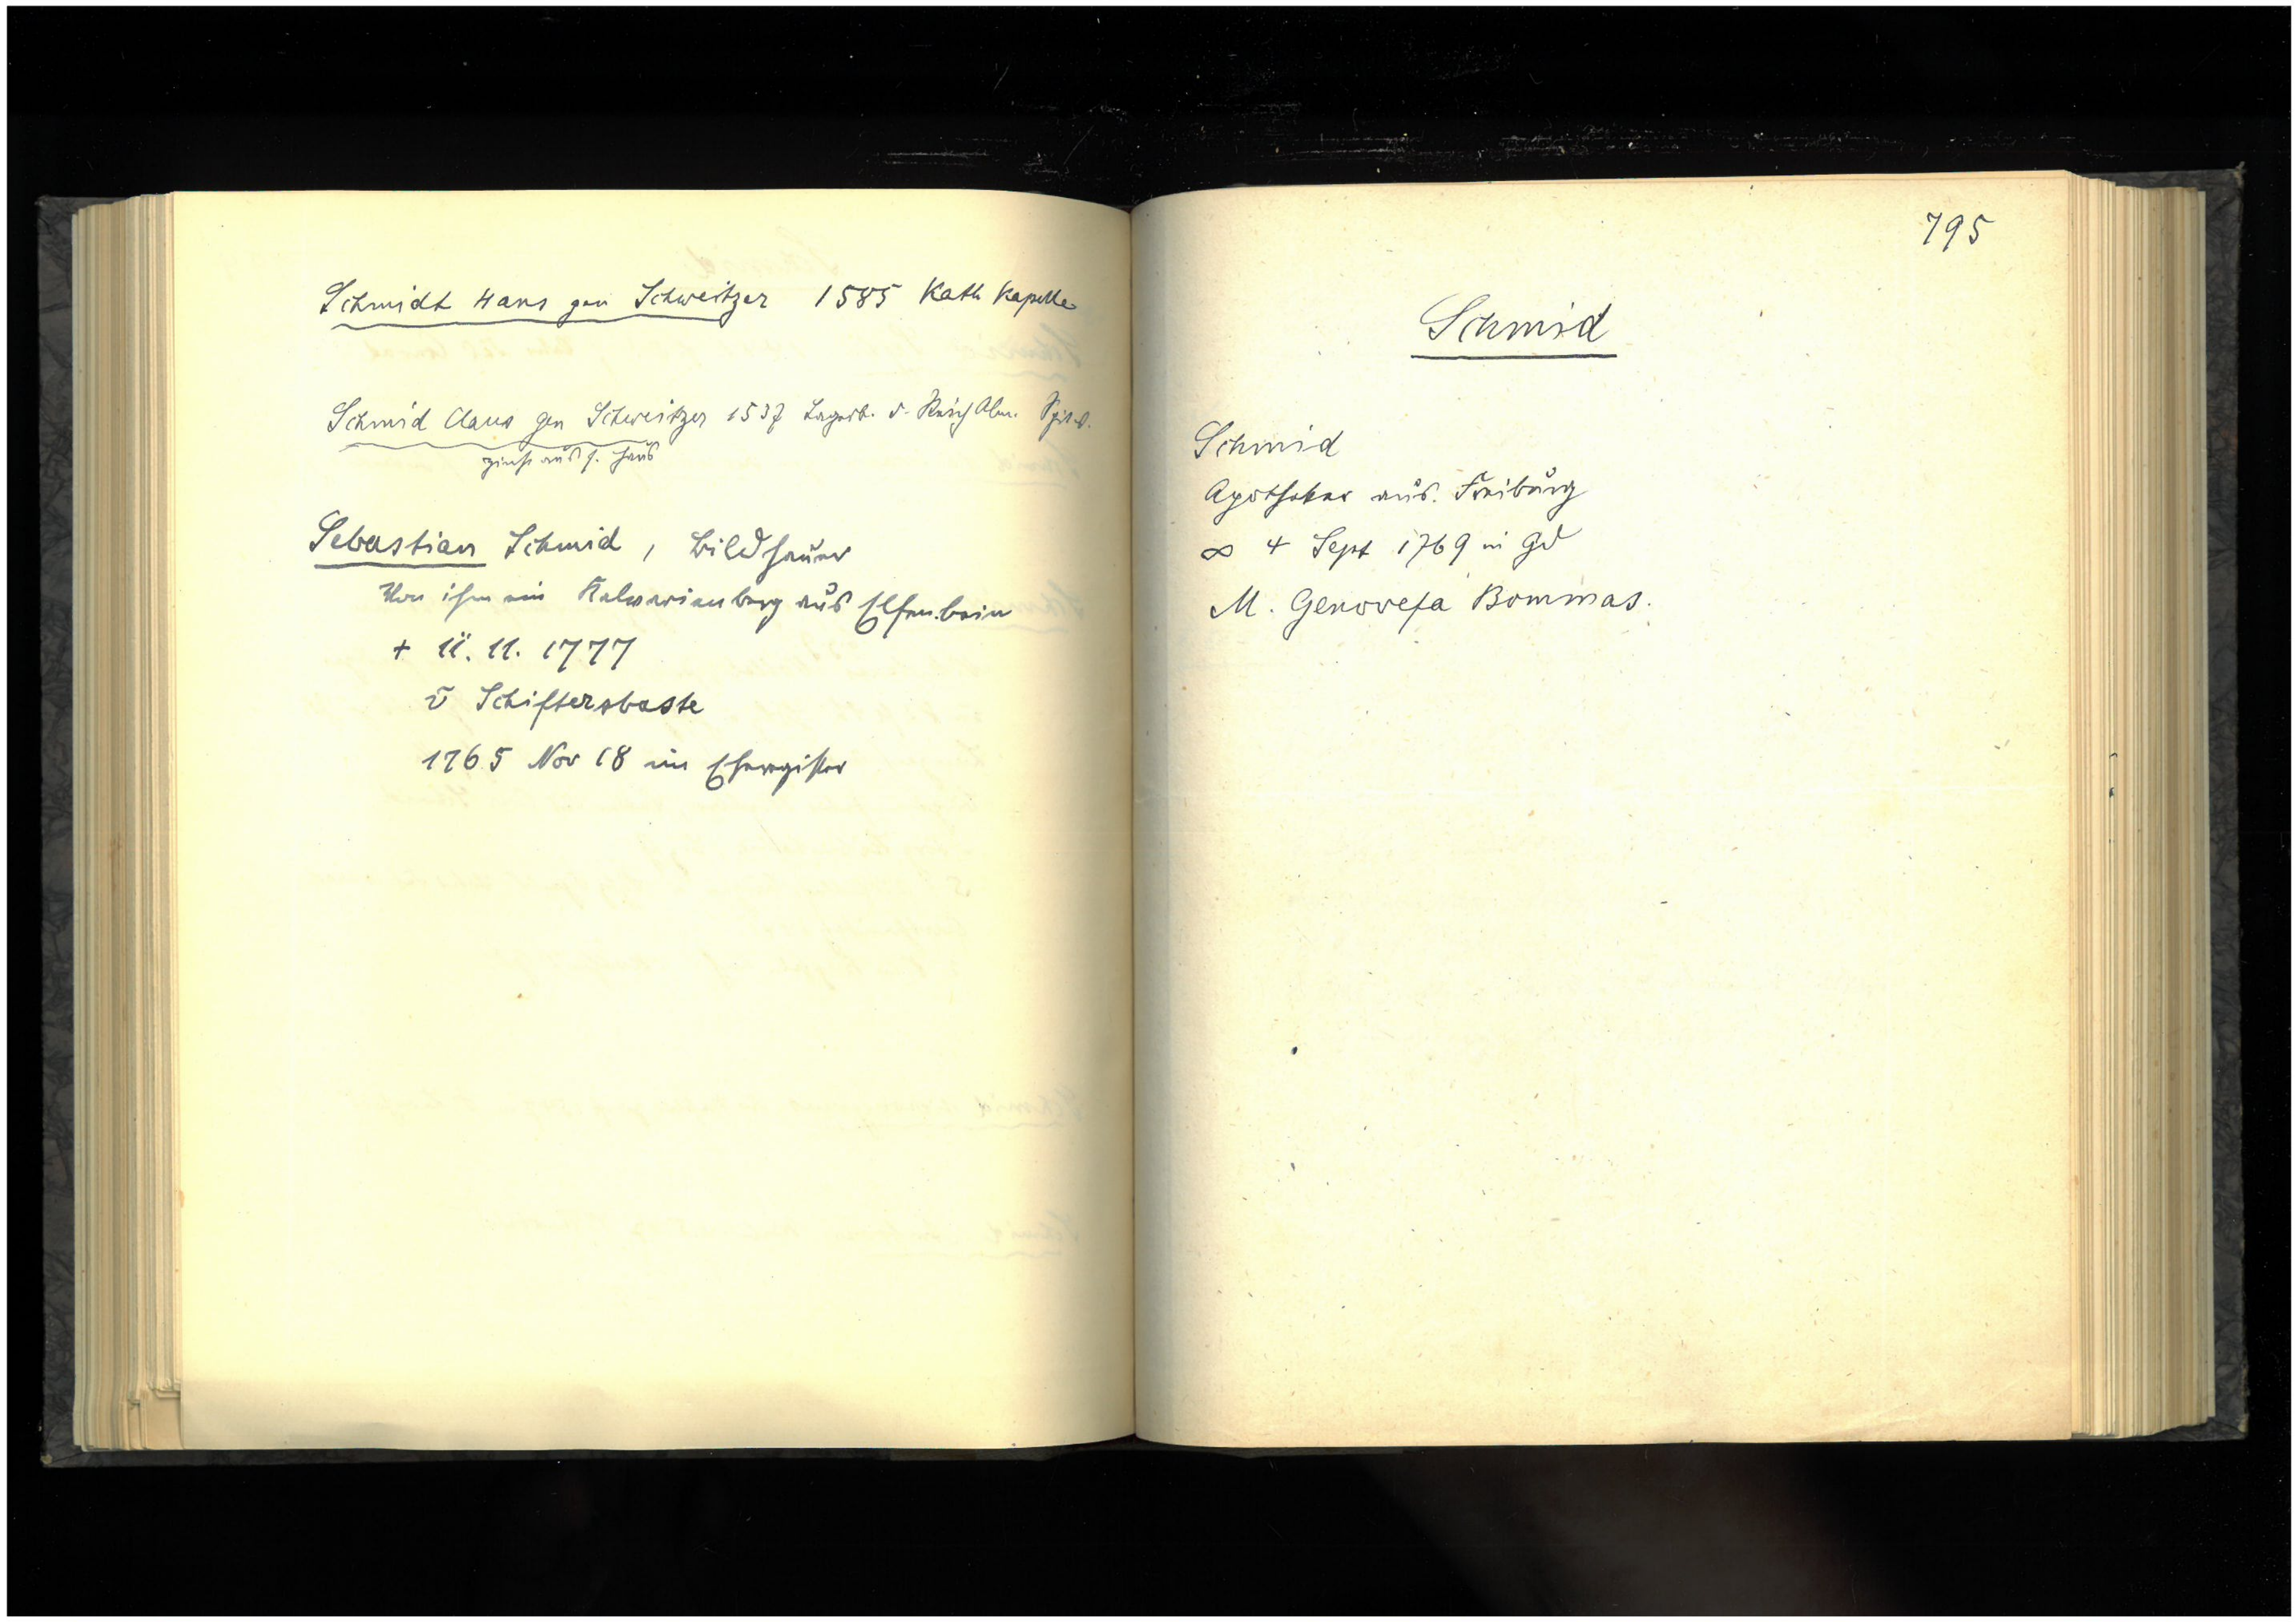 Schmidt Hans gen Schweitzer 1585 Kath Kapelle
Schmid Claus gen Schweitzer 1537 Lagerb. d. Reich Alm. Spit.
zinst aus s. Haus
Sebastian Schmid, Bildhauer
Von ihm ein Kalvarienberg aus Elfenbein
+ 11. 11. 1777
v Schiftersbaste
1765 Nov 18 im Eheregister
795
Schmid
Schmid
Apotheker aus. Freiburg
∞ 4 Sept 1769 in Gd
M. Genovefa Bommas.